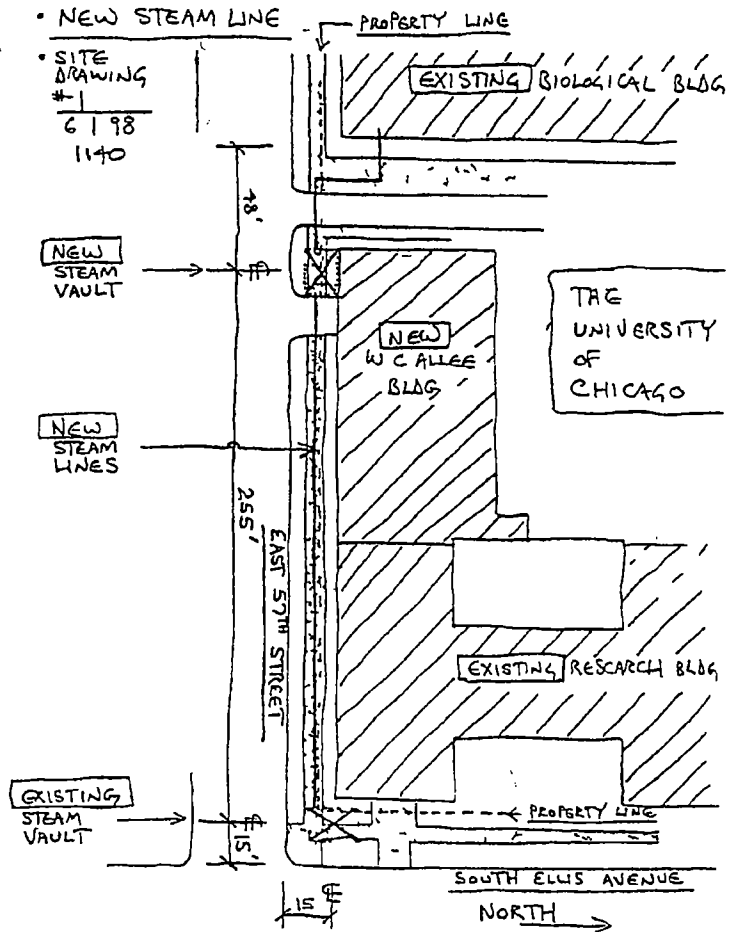 • NEW STEAM LINE
PROPERTY LINE
• SITE
DRAWING
# 1
6 1 98
1140
EXISTING BIOLOGICAL BLDG
48'
NEW
STEAM
VAULT
NEW
W C ALLEE
BLDG
THE
UNIVERSITY
OF
CHICAGO
NEW
STEAM
LINES
255'
EAST 57TH STREET
EXISTING RESEARCH BLDG
EXISTING
STEAM
VAULT
PROPERTY LINE
15'
15
SOUTH ELLIS AVENUE
NORTH